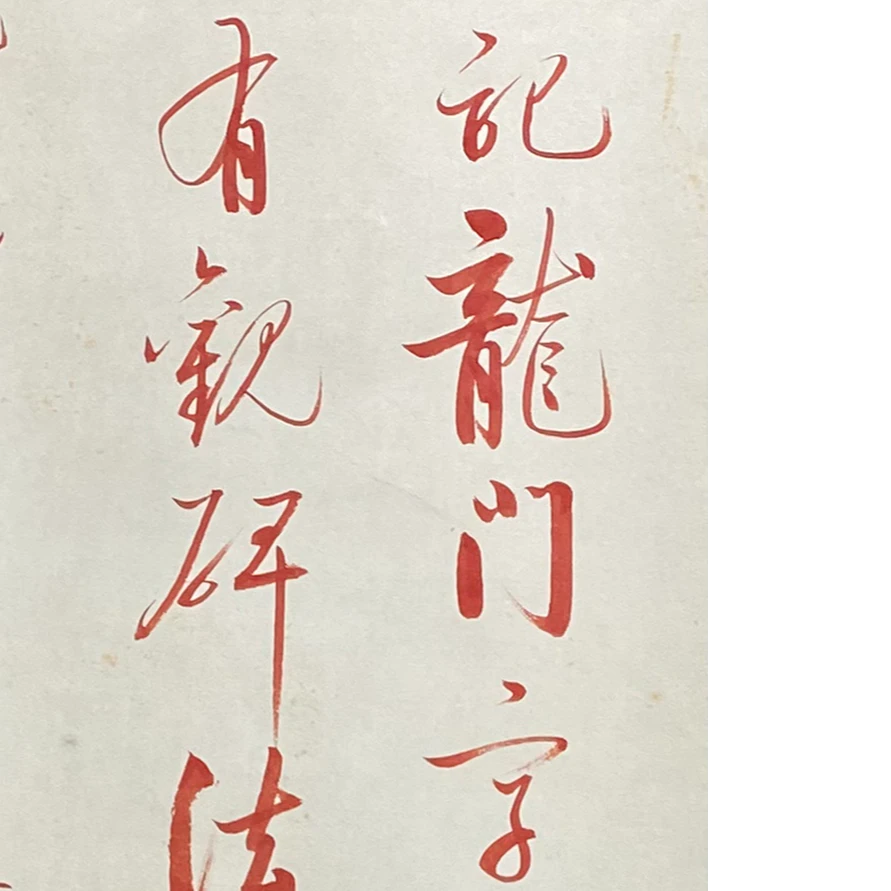 記龍门字
有觀碑法